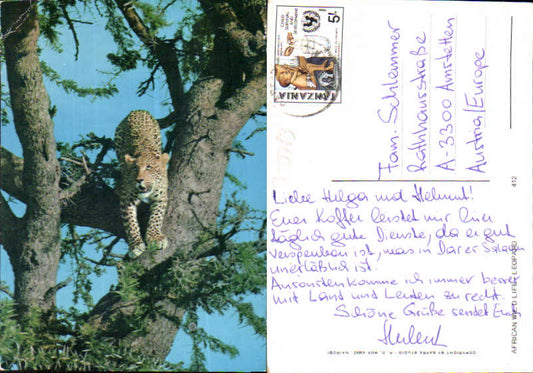 Liebe Helga und Helmut!
Euer Koffer leistet mir hier
täglich gute Dienste, da er gut
versperrbar ist, was in Dar es Salaam
unerläßlich ist.
Ansonsten komme ich immer besser
mit Land und Leuten zu recht.
Schöne Grüße sendet Euch
Herbert
5/-
TANZANIA
Fam. Schlemmer
Rathhausstraße
A-3300 Amstetten
Austria/Europe
AFRICAN WILD LIFE: LEOPARD
412
COPYRIGHT BY SAPRA STUDIO - P. O. BOX NAIROBI